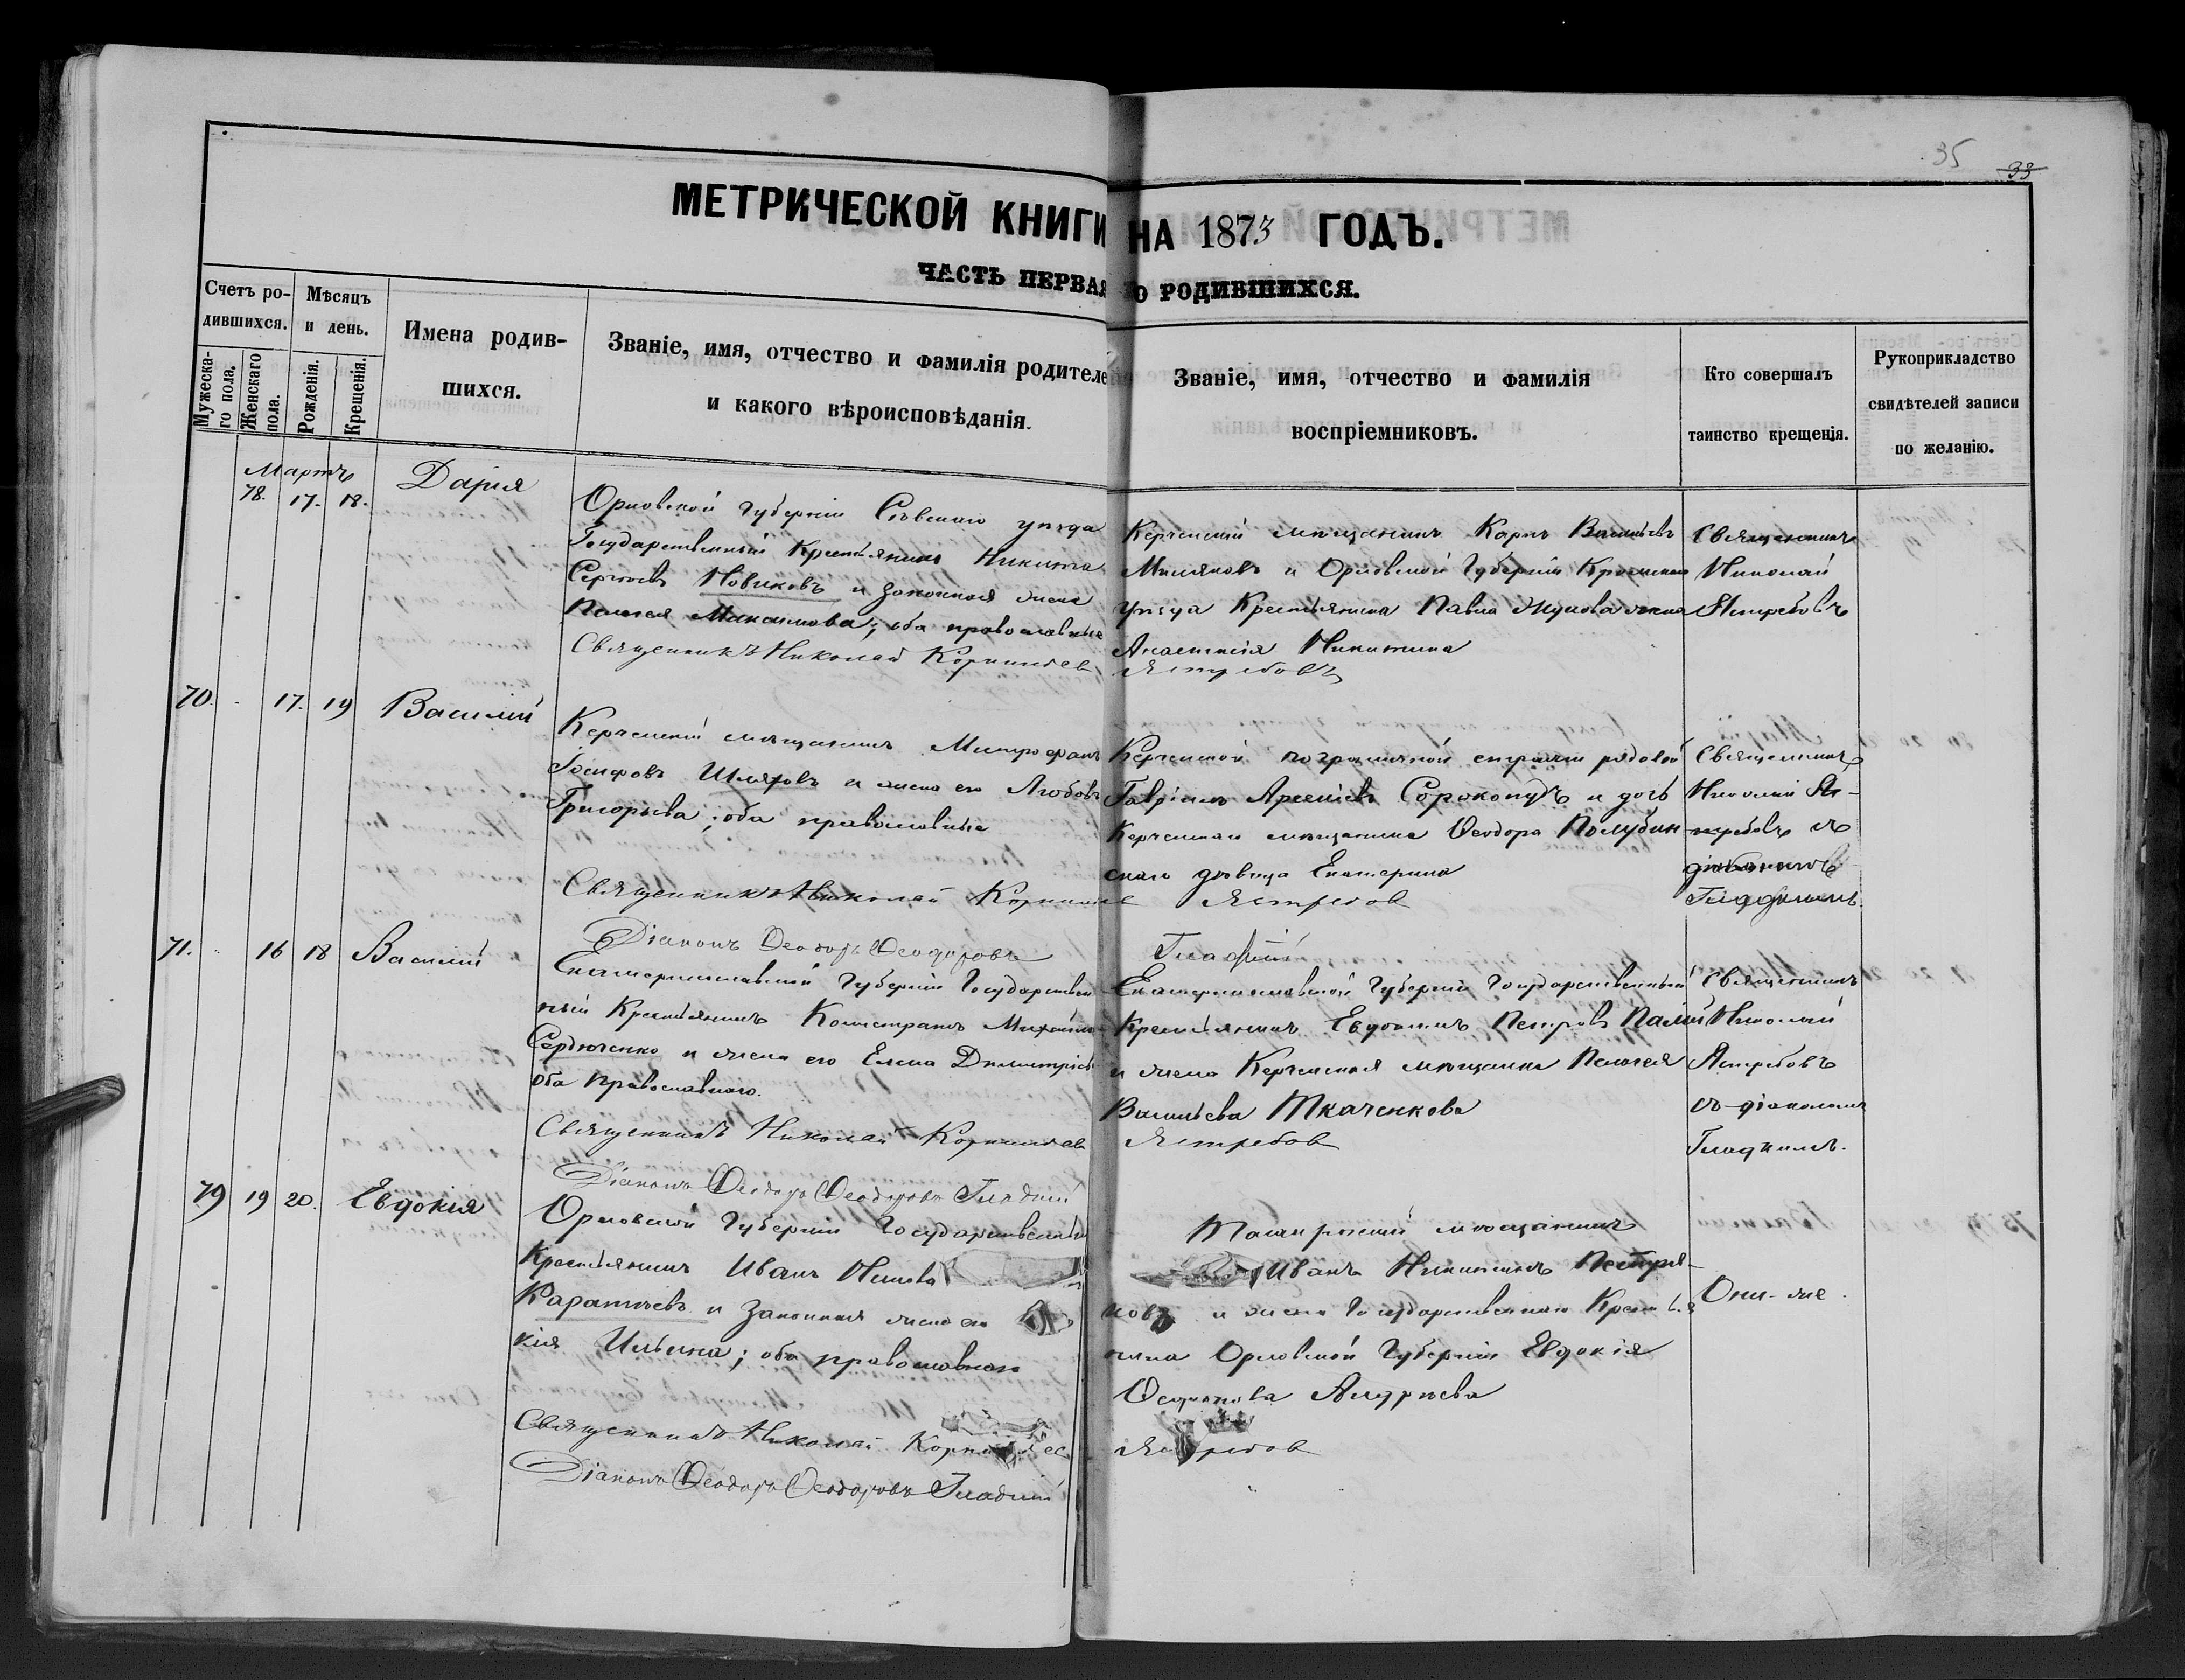 35 33
МЕТРИЧЕСКОЙ КНИГИ НА 1873 ГОДЪ.
ЧАСТЬ ПЕРВАЯ О РОДИВШИХСЯ.
Счетъ родившихся.
Мужеска-
го пола.
Женскаго
пола.
Мѣсяцъ
и день.
Рожденія.
Крещенія.
Имена родив-
шихся.
Званіе, имя, отчество и фамилія родителей
и какого вѣроисповѣданія.
Званіе, имя, отчество и фамилія
воспріемниковъ.
Кто совершалъ
таинство крещенія.
Рукоприкладство
свидѣтелей записи
по желанію.
Мартъ
78. 17. 18. Дарія
Орловской Губерніи Сѣвскаго уѣзда
Государственный Крестьянинъ Никита
Сергѣевъ Новиковъ и законная жена
Пелагея Максимова; оба православные
Священникъ Николай Корнильев
Керченскій мѣщанинъ Карпъ Васильевъ
и Орловской Губерніи
уѣзда Крестьянина Павла жена
Анастасія Никитина
Ястребовъ
Священникъ
Николай
Ястребовъ
70. 17. 19 Василій
Керченскій мѣщанинъ Митрофанъ
Іосифовъ и жена его Любовь
Григорьева; оба православные
Священникъ Николай
Діаконъ Ѳеодоръ Ѳеодоровъ
Керченской пограничной стражи рядовой
Гавріилъ Арсеніевъ Сорокопудъ и дочь
Керченскаго мѣщанина Ѳеодора Полубин-
скаго дѣвица Екатерина
Ястребов
Гладкій
Священникъ
Николай Яс-
требовъ съ
діакономъ
Гладкимъ.
71. 16 18 Василій
Екатеринославской Губерніи Государствен-
ный Крестьянинъ Калистратъ
Сердюченко и жена его Елена Димитріева
оба православнаго.
Священникъ Николай Корнильев
Діаконъ Ѳеодоръ Ѳеодоровъ Гладкій
Екатеринославской Губерніи Государственный
Крестьянинъ Евдокимъ Петровъ Палій
и жена Керченская мѣщанка Пелагея
Васильева Ткаченкова
Ястребов
Священникъ
Николай
Ястребовъ
съ діакономъ
Гладкимъ.
79 19 20. Евдокія
Орловской Губерніи Государственный
Крестьянинъ Иванъ
и законная жена его
кія Ильина; оба православнаго
Священникъ Николай
Діаконъ Ѳеодоръ Ѳеодоровъ Гладкій
мѣщанинъ
Иванъ Никитинъ
ковъ и жена Государственнаго Крестья-
нина Орловской Губерніи Евдокія
Андреева
Ястребов
Они-же.